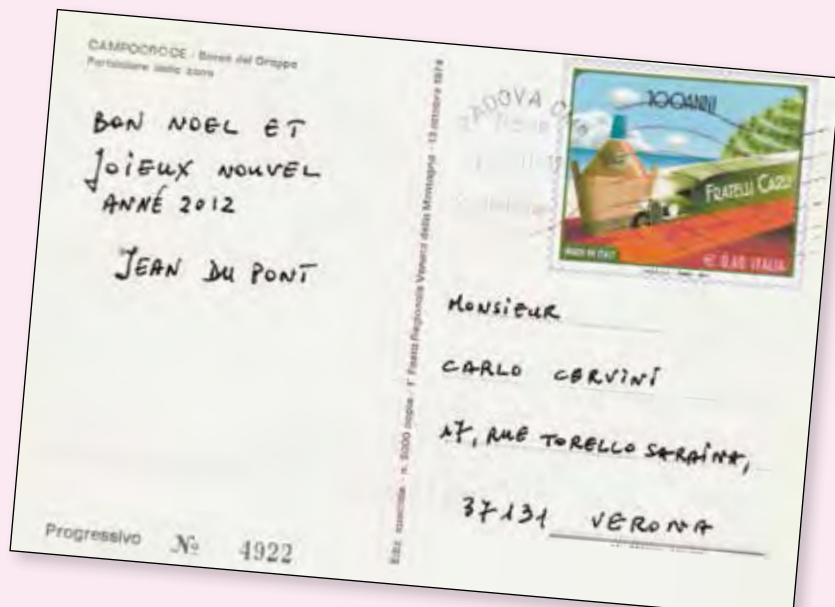 CAMPOCROCE - Borso del Grappa
Particolare della zona
BON NOEL ET
JOIEUX NOUVEL
ANNÉ 2012
JEAN DU PONT
Progressivo № 4922
Ediz. speciale - n. 5000 copie - 1ª Festa Regionale Veneta della Montagna - 13 ottobre 1974
PADOVA
100 ANNI
FRATELLI CARLI
MADE IN ITALY
€ 0,60 ITALIA
MONSIEUR
CARLO CERVINI
17, RUE TORELLO SARAINA,
37131 VERONA